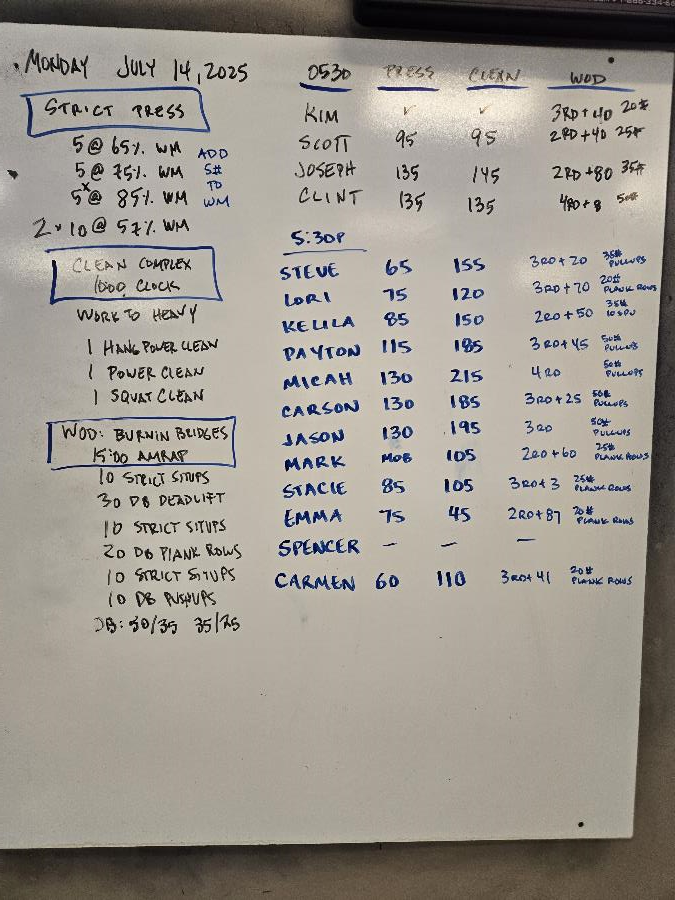 MONDAY JULY 14, 2025
STRICT PRESS
5 @ 65% WM
5 @ 75% WM
5x @ 85% WM
2x10 @ 57% WM
ADD
5#
TO
WM
CLEAN COMPLEX
10:00 CLOCK
WORK TO HEAVY
1 HANG POWER CLEAN
1 POWER CLEAN
1 SQUAT CLEAN
WOD: BURNIN BRIDGES
15:00 AMRAP
10 STRICT SITUPS
30 DB DEADLIFT
10 STRICT SITUPS
20 DB PLANK ROWS
10 STRICT SITUPS
10 DB PUSHUPS
DB: 50/35 35/25
0530 PRESS CLEAN WOD
KIM ✓ ✓ 3RD+40 20#
SCOTT 95 95 2RD+40 25#
JOSEPH 135 145 2RD+80 35#
CLINT 135 135 4RD+8 50#
5:30P
STEVE 65 155 3RD+20 35# PULLUPS
LORI 75 120 3RD+70 20# PLANK ROWS
KELILA 85 150 2RD+50 35#
PAYTON 115 185 3RD+45 50# PULLUPS
MICAH 130 215 4RD 50# PULLUPS
CARSON 130 185 3RD+25 50# PULLUPS
JASON 130 195 3RD 50# PULLUPS
MARK MOB 105 2RD+60 25# PLANK ROWS
STACIE 85 105 3RD+3 25# PLANK ROWS
EMMA 75 45 2RD+87 20# PLANK ROWS
SPENCER — — —
CARMEN 60 110 3RD+41 20# PLANK ROWS